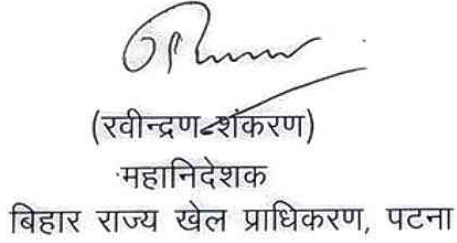 (रवीन्द्रण शंकरण)
महानिदेशक
बिहार राज्य खेल प्राधिकरण, पटना